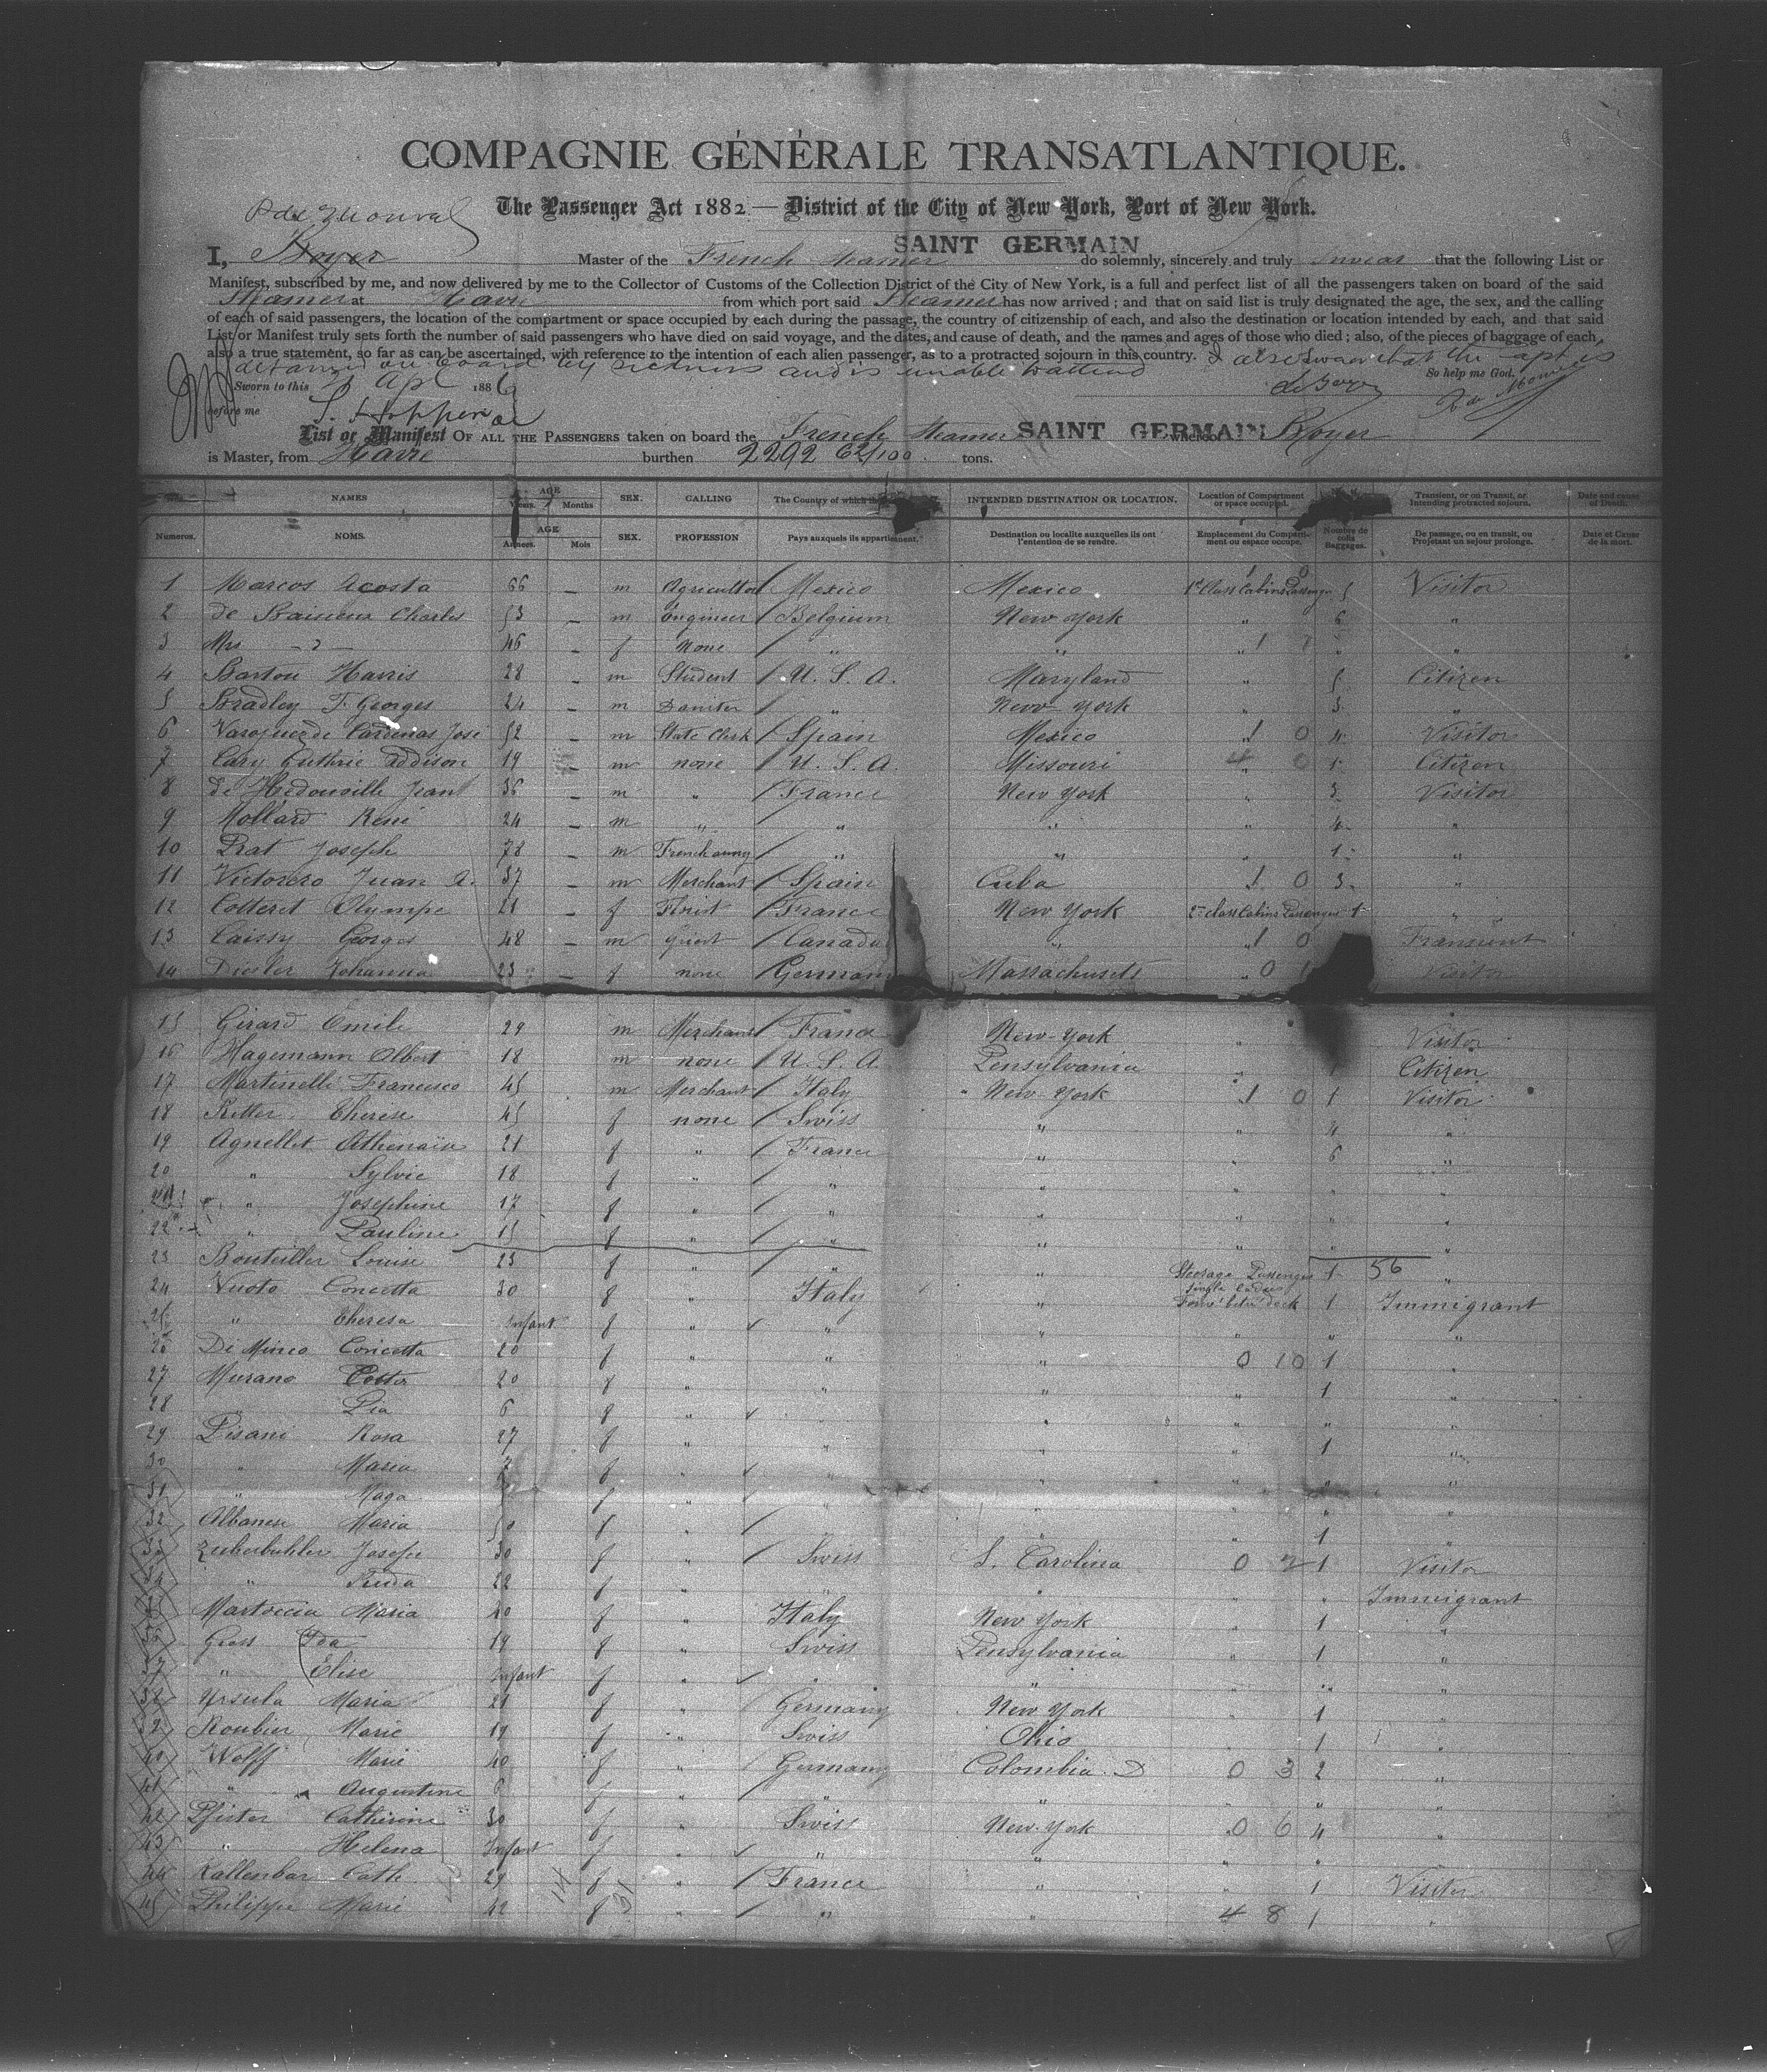 COMPAGNIE GÉNÉRALE TRANSATLANTIQUE.
The Passenger Act 1882 — District of the City of New York, Port of New York.
SAINT GERMAIN
I, Boyer Master of the French Steamer do solemnly, sincerely and truly swear that the following List or
Manifest, subscribed by me, and now delivered by me to the Collector of Customs of the Collection District of the City of New York, is a full and perfect list of all the passengers taken on board of the said
Steamer at Havre from which port said Steamer has now arrived ; and that on said list is truly designated the age, the sex, and the calling
of each of said passengers, the location of the compartment or space occupied by each during the passage, the country of citizenship of each, and also the destination or location intended by each, and that said
List or Manifest truly sets forth the number of said passengers who have died on said voyage, and the dates, and cause of death, and the names and ages of those who died ; also, of the pieces of baggage of each,
also a true statement, so far as can be ascertained, with reference to the intention of each alien passenger, as to a protracted sojourn in this country. I also swear that the capt is
detained on board by sickness and is unable to attend So help me God.
Sworn to this Apl 1886
before me
List or Manifest OF ALL THE PASSENGERS taken on board the French Steamer SAINT GERMAIN whereof Boyer
is Master, from Havre burthen 2292 62/100 tons.
NAMES AGE Years. Months SEX. CALLING The Country of which INTENDED DESTINATION OR LOCATION. Location of Compartment or space occupied. Transient, or on Transit, or Intending protracted sojourn. Date and cause of Death.
Numeros. NOMS. AGE Années. Mois SEX. PROFESSION Pays auxquels ils appartiennent. Destination ou localite auxquelles ils ont l'entention de se rendre. Emplacement du Compartiment ou espace occupe. Nombre de colis Baggages. De passage, ou en transit, ou Projetant un sejour prolonge. Date et Cause de la mort.
1 Marcos Acosta 66 — m Agricultor Mexico Mexico 1st Class Cabins Passenger 5 Visitor
2 de Charles 53 — m Engineer Belgium New York " 6 "
3 Mrs — 46 — f None " " " 1 "
4 Barton Harris 28 — m Student U. S. A. Maryland " 5 Citizen
5 Bradley T. Georges 24 — m " New York " 3 "
6 de Cardenas José 52 — m State Clerk Spain Mexico 1 0 4 Visitor
7 Cary Guthrie Addison 19 — m none U. S. A. Missouri 4 0 1 Citizen
8 de Hedouville Jean 36 — m " France New York " 3 Visitor
9 Mollard René 24 — m " " " " 4 "
10 Prat Joseph 78 — m French army " " " 1 "
11 Victorero Juan A. 37 — m Merchant Spain Cuba 1 0 3 "
12 Cotteret Olympe 21 — f Florist France New York 2nd class Cabins Passenger 1 "
13 Caissy Georges 48 — m Priest Canada " 1 0 Transient
14 Diesler Johanna 23 — f none Germany Massachusett 0 1 Visitor
15 Girard Emile 29 m Merchant France New-York " Visitor
16 Hagemann Albert 18 m none U. S. A Pensylvania " 1 Citizen
17 Martinelli Francesco 45 m Merchant Italy New York 1 0 1 Visitor
18 Ritter Therese 45 f none Swiss " " 4 "
19 Agnellet Athenaïse 21 f " France " " 6 "
20 " Sylvie 18 f " " " " " "
21 " Josephine 17 f " " " " " "
22 " Pauline 15 f " " " " " "
23 Bouteiller Louise 23 f " " " Steerage Passenger 1 56 "
24 Vuoto Concetta 30 f Italy " Single ladies Forw' betw' deck 1 Immigrant
25 " Theresa Infant f " " " " " "
26 Di Minco Concetta 20 f " " " 0 10 1 "
27 Murano 20 f " " " " 1 "
28 " Pia 6 f " " " " "
29 Pisani Rosa 27 f " " " " 1 "
30 " Maria f " " " " "
31 " f " " " " "
32 Albanese Maria 50 f " " " 1 "
33 Zuberbuhler 30 f " Swiss S. Carolina 0 2 1 Visitor
34 " 22 f " " " " Immigrant
35 Martoccia Maria 40 f " Italy New York 1 "
36 Gross Ida 19 f " Swiss Pensylvania " 1 "
37 " Elise Infant f " " " " " "
38 Ursula Maria 21 f " Germany New York " 1 "
39 Roubier Marie 19 f " Swiss Ohio 1 "
40 Wolff Marie 40 f " Germany Colombia D 0 3 2 "
41 " Augustine 6 f " " " " "
42 Pfister Catherine 30 f " Swiss New-York 0 6 4 "
43 " Helena Infant f " " " " "
44 Kallenbar Cath. 29 f " France " " 1 Visitor
45 Philippe Marie 42 f " " " 4 8 1 "